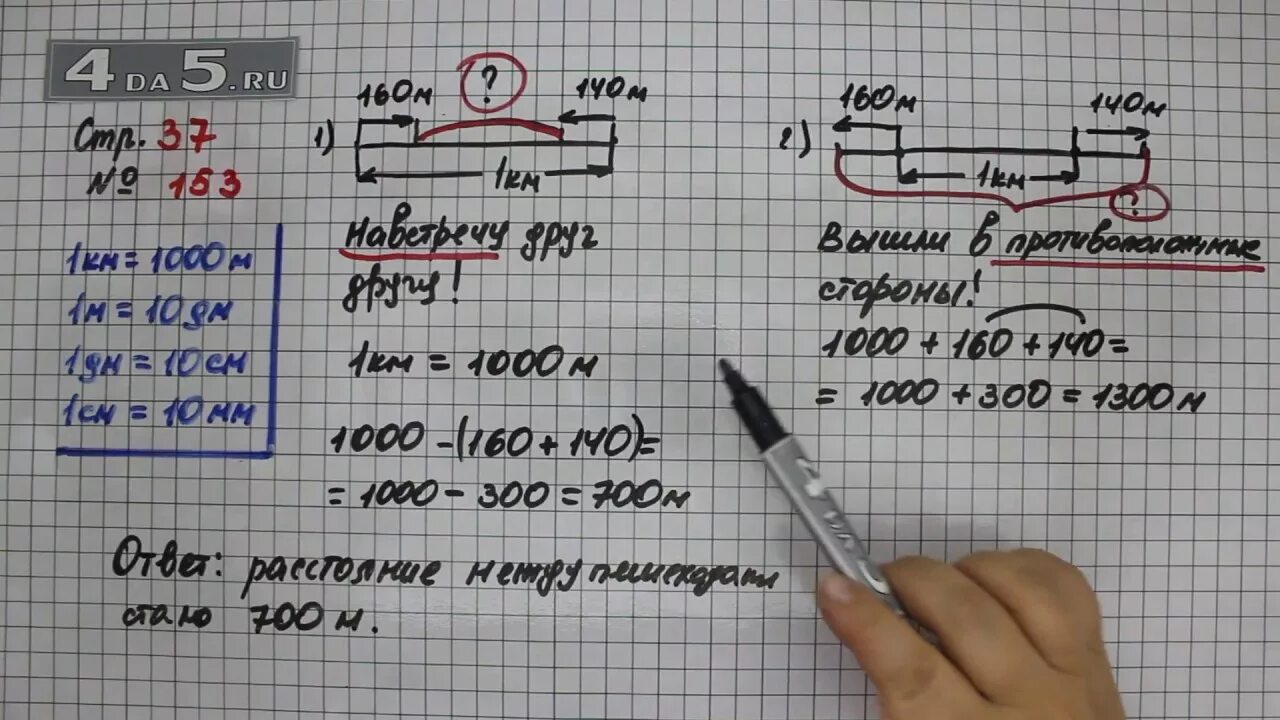 4 DA 5.RU
Стр. 37
№ 153
1км = 1000 м
1м = 10 дм
1дм = 10 см
1см = 10 мм
160м ? 140м
1)
1км
Навстречу друг
другу!
1км = 1000 м
1000 - (160 + 140) =
= 1000 - 300 = 700 м
Ответ: расстояние между пешеходами
стало 700 м.
160м 140м
2)
1км
?
Вышли в противоположные
стороны!
1000 + 160 + 140 =
= 1000 + 300 = 1300 м